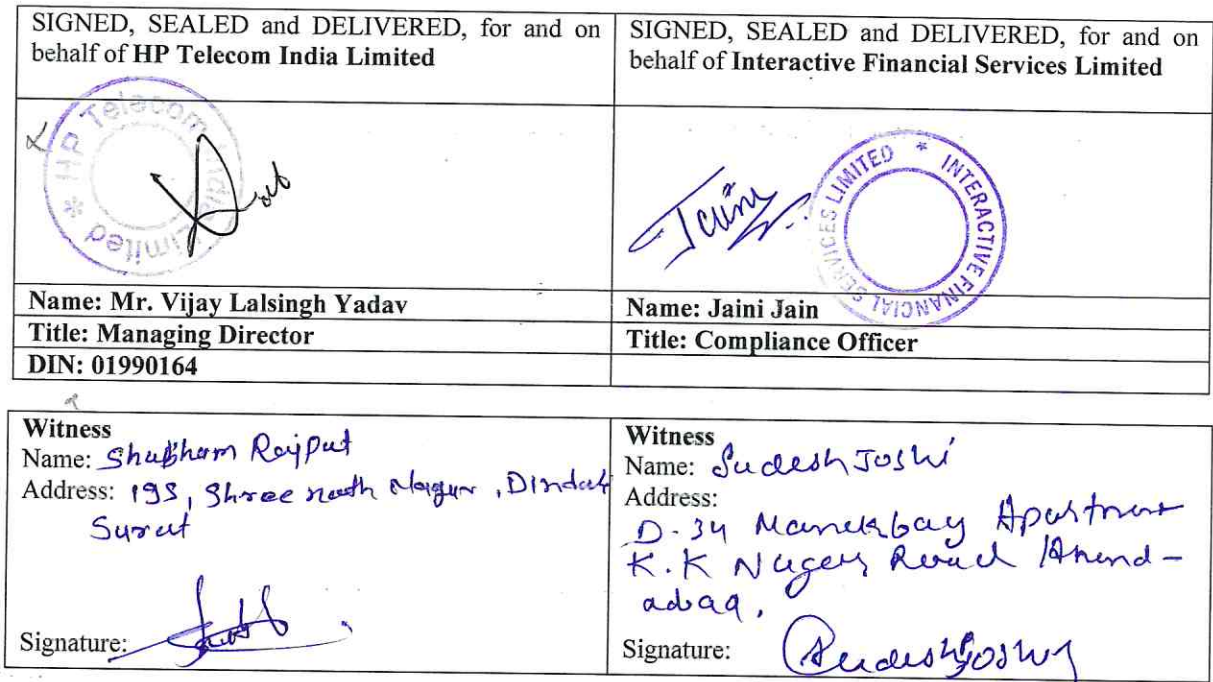 SIGNED, SEALED and DELIVERED, for and on
behalf of HP Telecom India Limited
SIGNED, SEALED and DELIVERED, for and on
behalf of Interactive Financial Services Limited
* HP Telecom India Limited
Jaini
* INTERACTIVE FINANCIAL SERVICES LIMITED
Name: Mr. Vijay Lalsingh Yadav
Title: Managing Director
DIN: 01990164
Name: Jaini Jain
Title: Compliance Officer
Witness
Name: Shubham Rajput
Address: 193, Shree nath Nagar, Dindoli
Surat
Signature:
Witness
Name: Sudesh Joshi
Address:
D-34 Manekbag Apartment
K.K Nagar Road Ahmd-
abad.
Signature: Sudesh Joshi